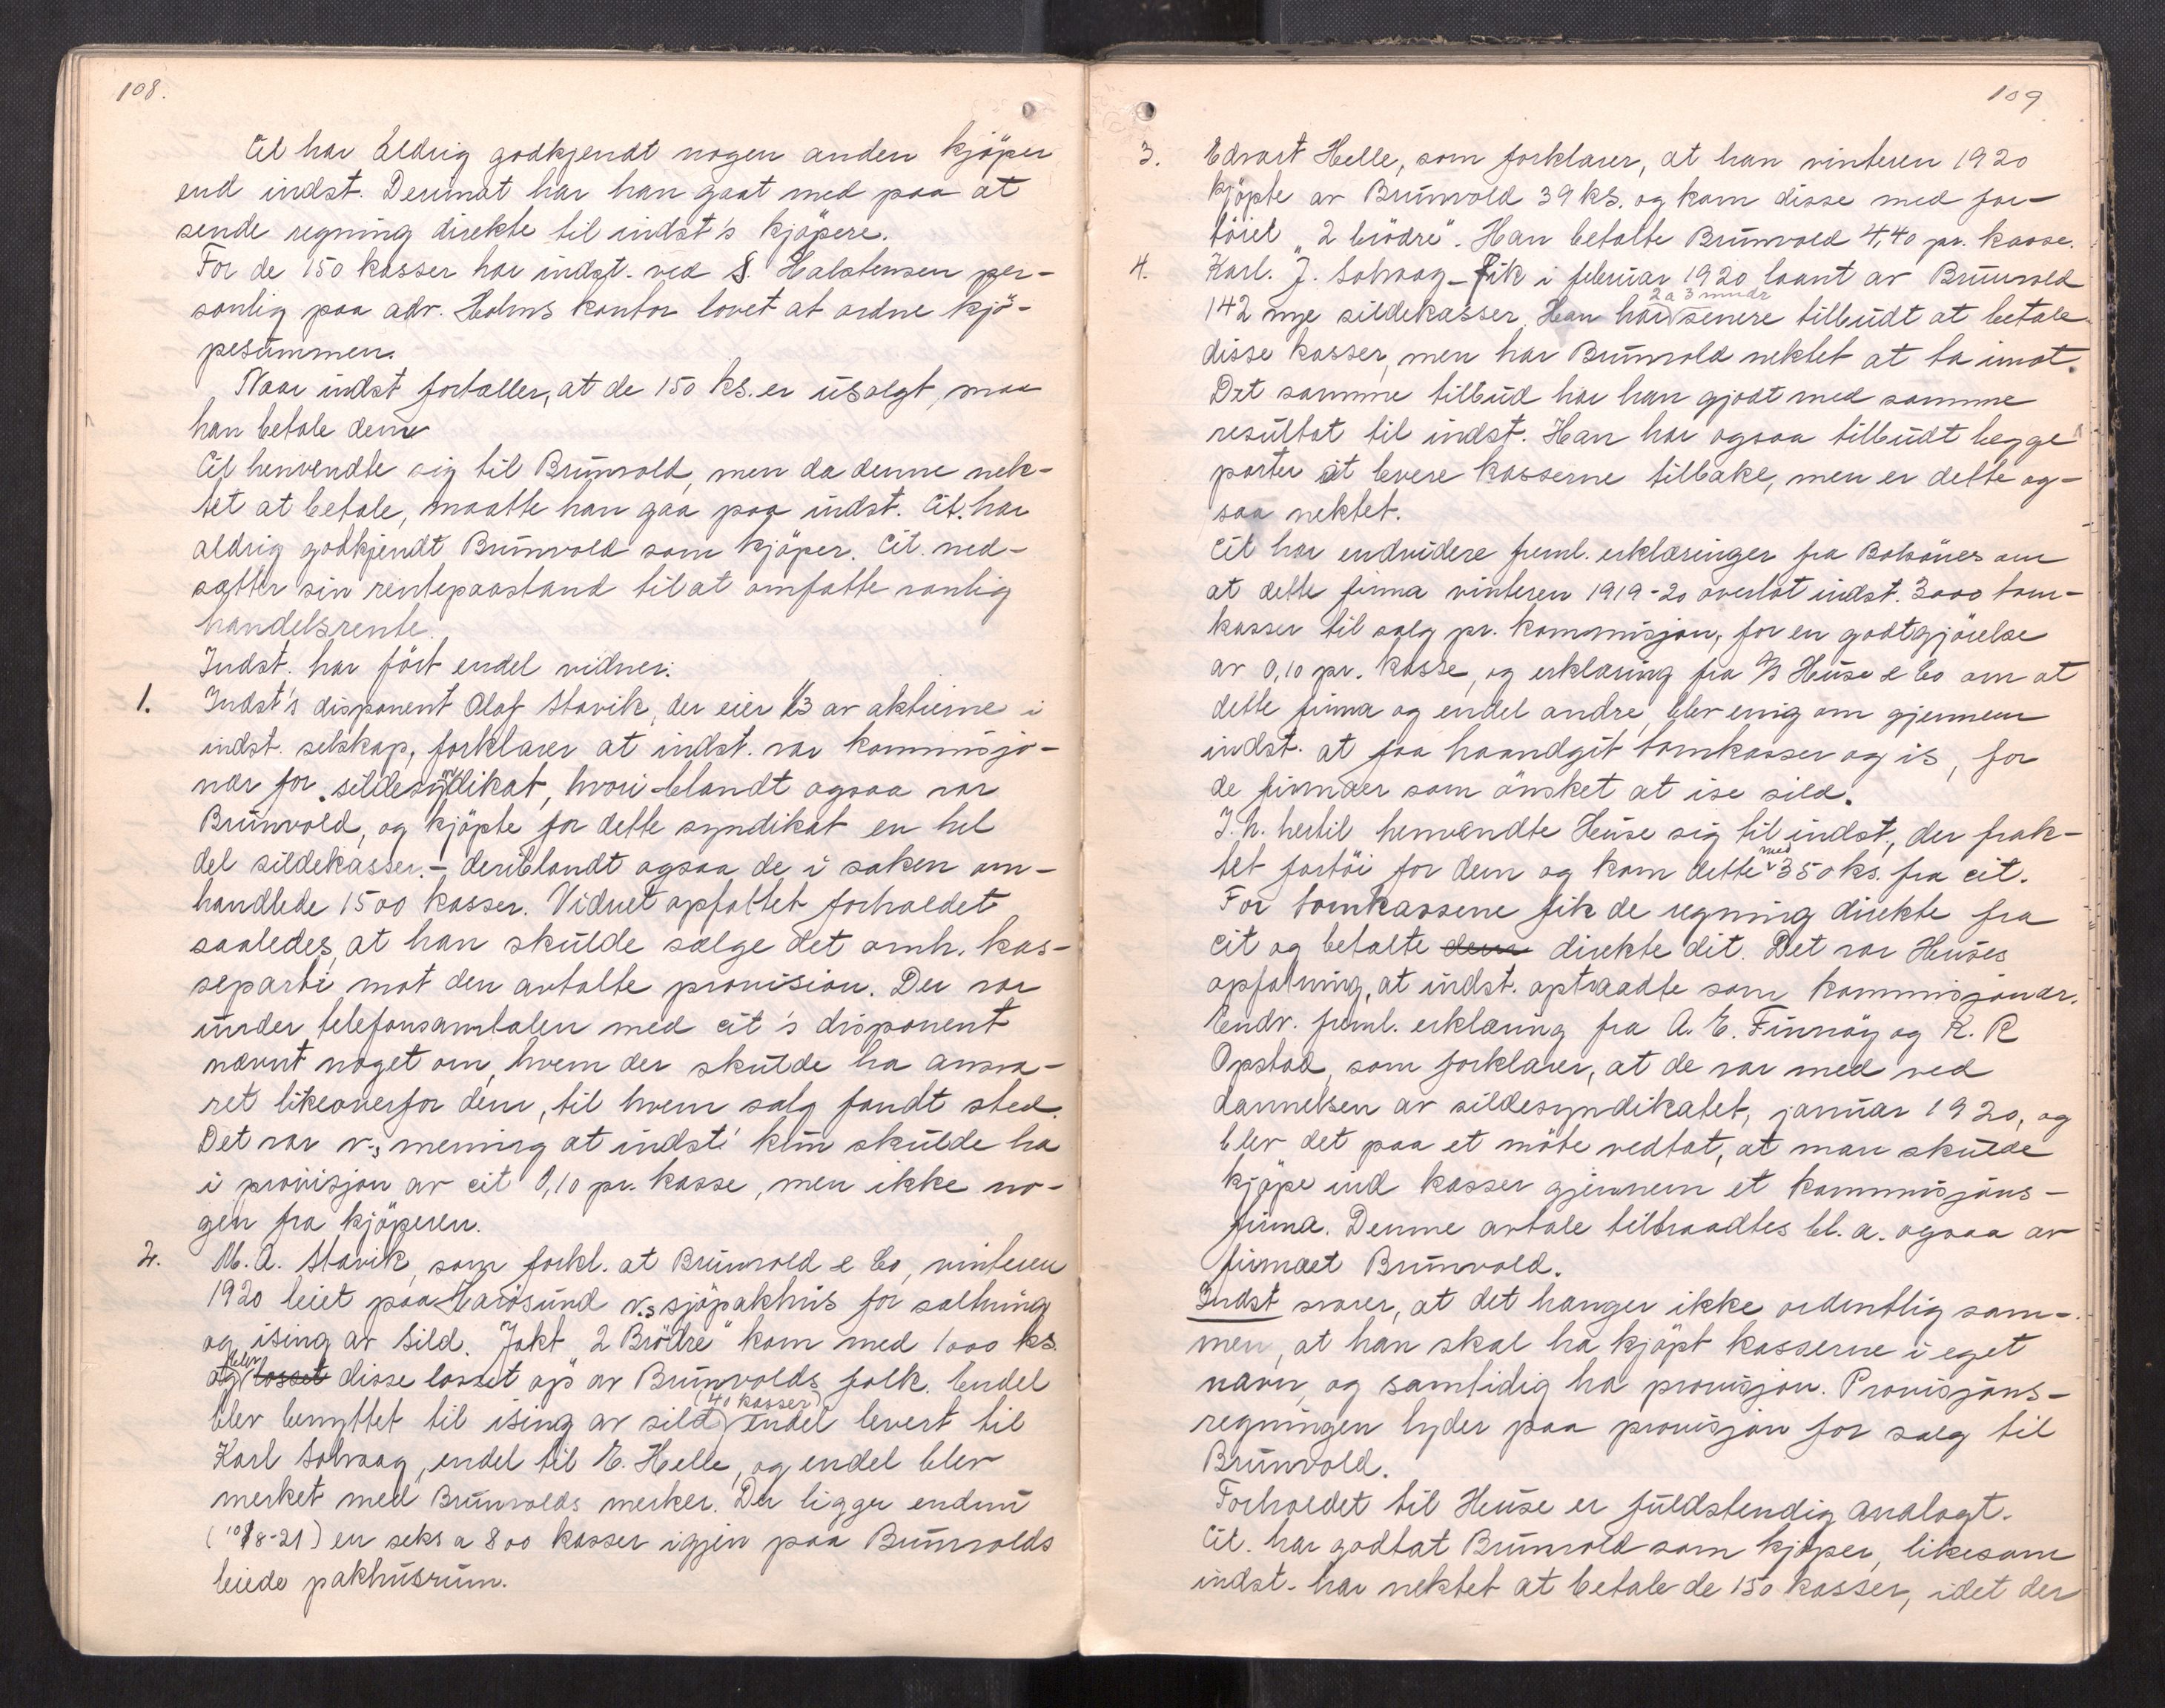 108.
Cit har aldrig godkjendt nogen anden kjöper
end indst. Derimot har han gaat med paa at
sende regning direkte til indst's kjöpere.
For de 150 kasser har indst. ved S. Halstensen per-
sonlig paa adv. Holms kontor lovet at ordne kjö-
pesummen.
Naar indst fortæller, at de 150 ks. er usolgt, maa
han betale dem
Cit henvendte sig til Brunvold, men da denne nek-
tet at betale, maatte han gaa paa indst. Cit. har
aldrig godkjendt Brunvold som kjöper. Cit. ned-
sætter sin rentepaastand til at omfatte vanlig
handelsrente.
Indst. har fört endel vidner:
1. Indst's disponent Olaf Stavik, der eier 1/3 av aktierne i
indst. selskap, forklarer at indst. var kommisjo-
nær for sildesyndikat, hvori blandt ogsaa var
Brunvold, og kjöpte for dette syndikat en hel
del sildekasser. – deriblandt ogsaa de i saken om-
handlede 1500 kasser. Vidnet opfattet forholdet
saaledes, at han skulde sælge det omh. kas-
separti mot den avtalte provision. Der var
under telefonsamtalen med cit's disponent
nævnt noget om, hvem der skulde ha ansva-
ret likeoverfor dem, til hvem salg fandt sted.
Det var v.s mening at indst. kun skulde ha
i provisjon av cit 0,10 pr. kasse, men ikke no-
gen fra kjöperen.
2. M. A. Stavik, som forkl. at Brunvold & Co, vinteren
1920 leiet paa HaröSund v.s sjöpakhus for saltning
og ising av sild. Jakt „2 Brödre" kom med 1000 ks.
og blev losset disse losset op av Brunvolds folk. Endel
blev benyttet til ising av sild, (40 kasser) endel levert til
Karl Solvaag, endel til E. Helle, og endel blev
merket med Brunvolds merker. Der ligger endnu
(10/8-21) en seks a 800 kasser igjen paa Brunvolds
leiede pakhusrum.
109
3. Edvart Helle, som forklarer, at han vinteren 1920
kjöpte av Brunvold 39 ks. og kom disse med far-
töiet „2 brödre". Han betalte Brunvold 4,40 pr. kasse.
4. Karl. J. Solvaag – fik i februar 1920 laant av Brunvold
142 nye sildekasser. Han har 2 a 3 mndr senere tilbudt at betale
disse kasser, men har Brunvold nektet at ta imot.
Det samme tilbud har han gjort med samme
resultat til indst. Han har ogsaa tilbudt begge
parter at levere kasserne tilbake, men er dette og-
saa nektet.
Cit har endvidere freml. erklæringer fra Bolsönes om
at dette firma vinteren 1919-20 overlot indst. 3000 tom-
kasser til salg pr. kommisjon, for en godtgjörelse
av 0,10 pr. kasse, og erklæring fra Heuse & Co om at
dette firma og endel andre, blev enig om gjennem
indst. at faa haandgit tomkasser og is, for
de firmaer som önsket at ise sild.
I. h. hertil henvendte Heuse sig til indst, der frak-
tet fartöi for dem og kom dette med 350 ks. fra cit.
For tomkassene fik de regning direkte fra
cit og betalte dem direkte dit. Det var Heuses
opfatning, at indst. optraadte som kommisjonær.
Endv. freml. erklæring fra A. E. Finnöy og K. R
Opstad, som forklarer, at de var med ved
dannelsen av sildesyndikatet, januar 1920, og
blev det paa et möte vedtat, at man skulde
kjöpe ind kasser gjennem et kommisjons-
firma. Denne avtale tiltraadtes bl. a. ogsaa av
firmaet Brunvold.
Indst svarer, at det hænger ikke ordentlig sam-
men, at han skal ha kjöpt kasserne i eget
navn og samtidig ha provisjon. Provisjons-
regningen lyder paa provisjon for salg til
Brunvold.
Forholdet til Heuse er fuldstendig analogt.
Cit. har godtat Brunvold som kjöper, likesom
indst. har nektet at betale de 150 kasser, idet der